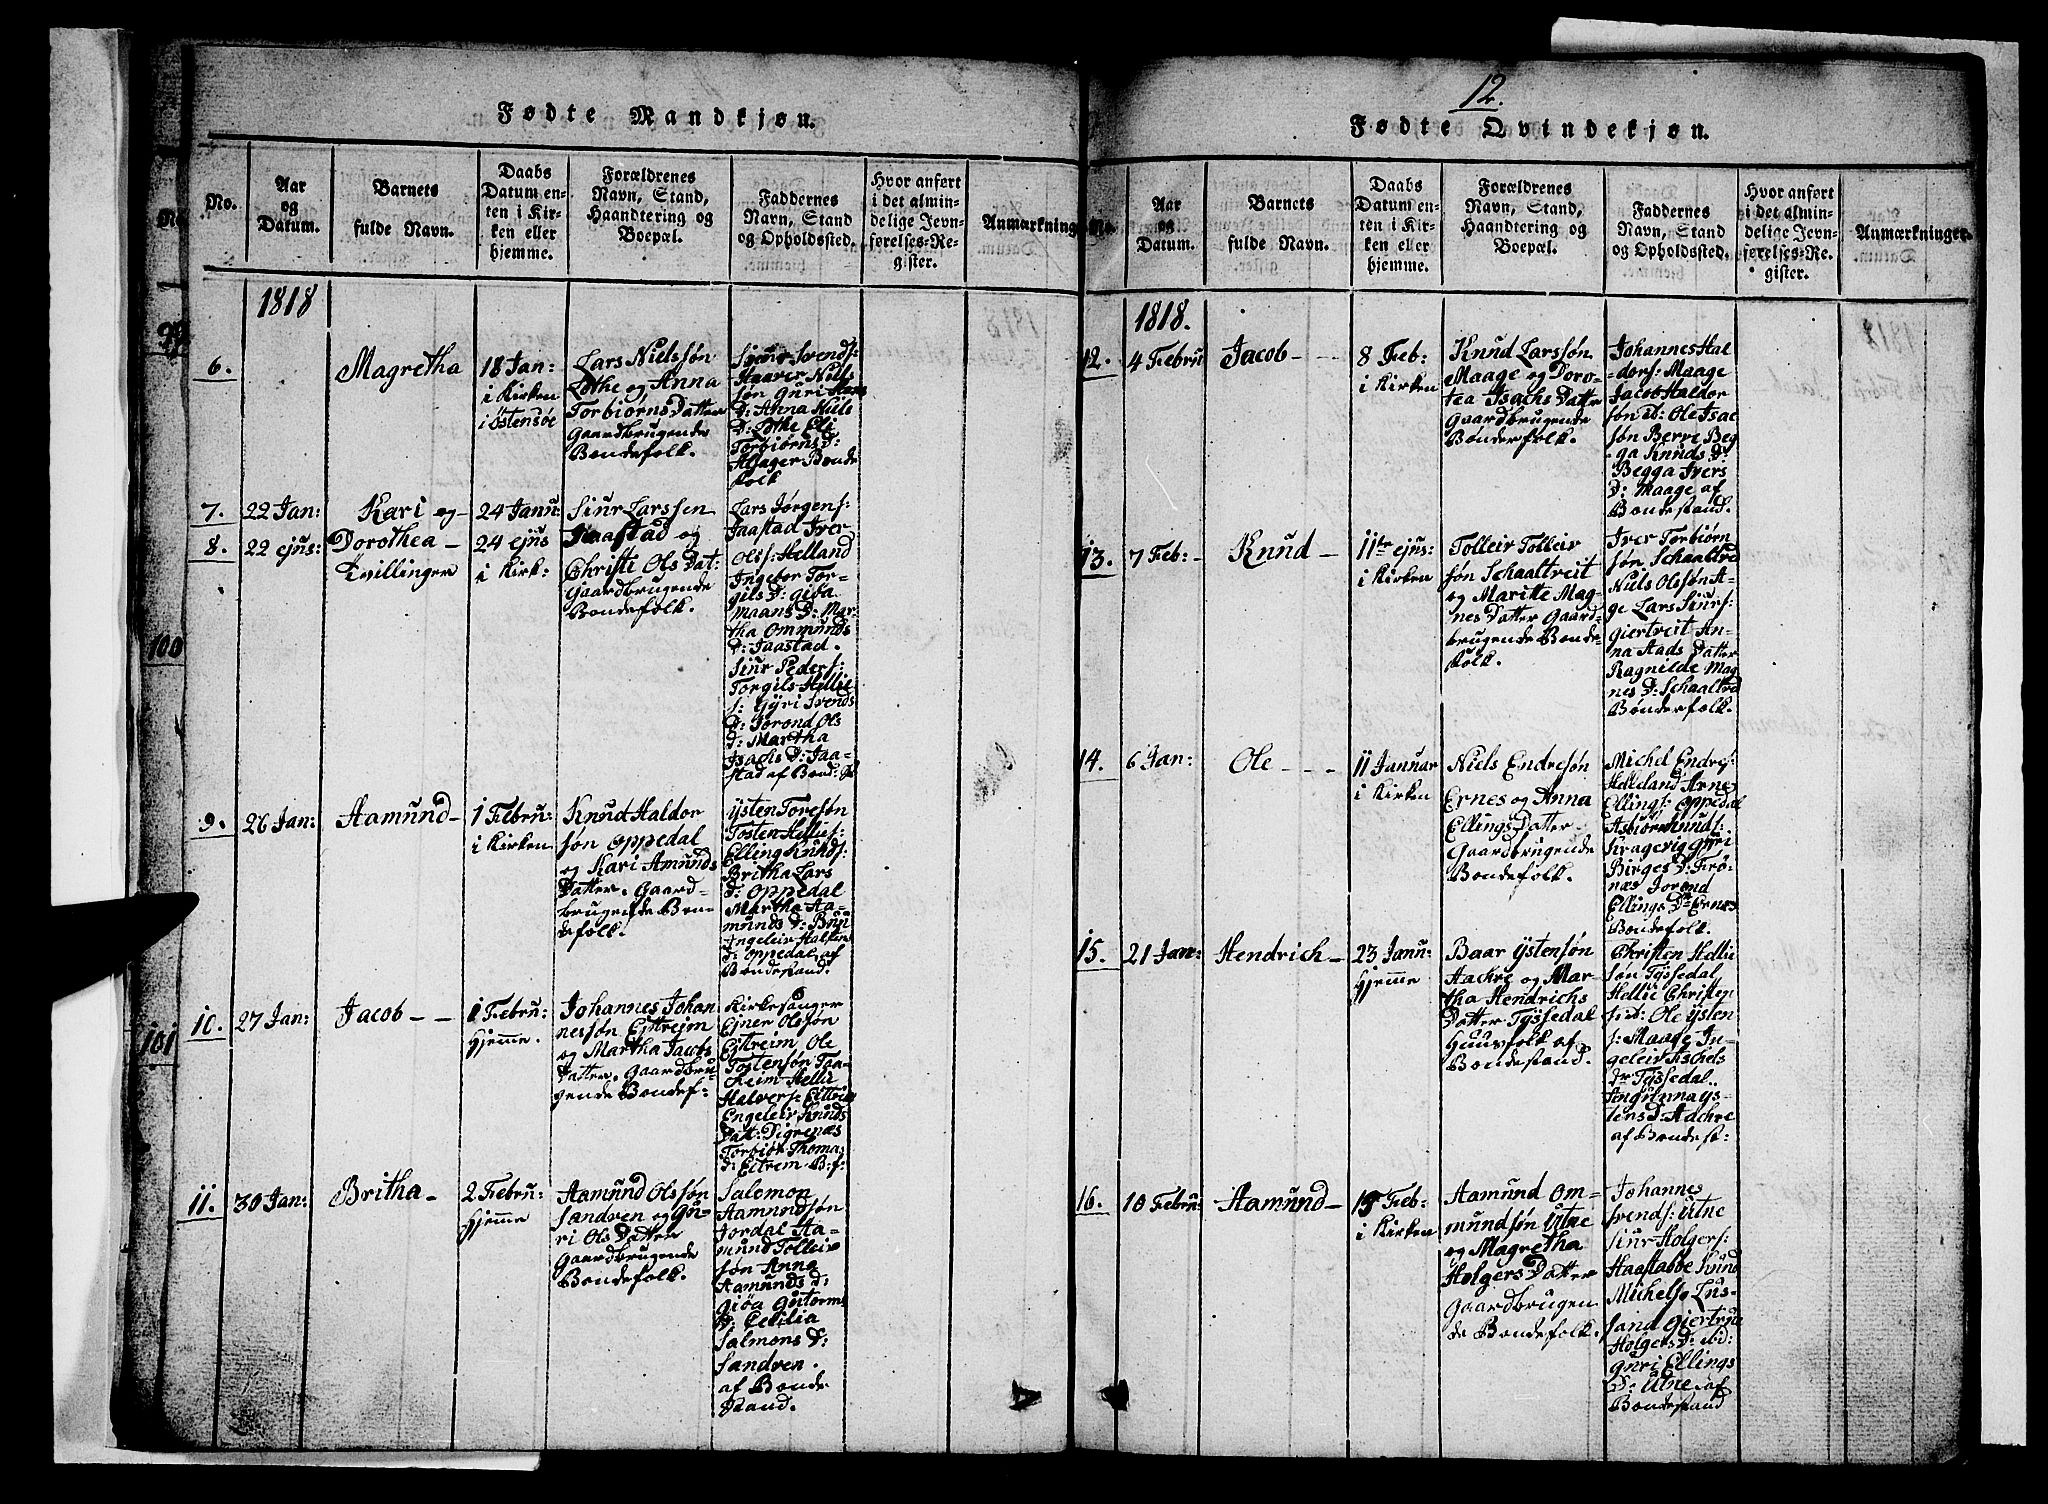 12.
Fødte Mandkjøn.
No.
Aar
og
Datum.
Barnets
fulde Navn.
Daabs
Datum en-
ten i Kir-
ken eller
hjemme.
Forældrenes
Navn, Stand,
Haandtering og
Boepæl.
Faddernes
Navn, Stand
og Opholdssted.
Hvor anført
i det almin-
delige Jevn-
førelses-Re-
gister.
Anmærkninger
1818
6.
Magretha
18 Jan:
i Kirken
i Östensöe
Lars Nielssön
Lothe og Anna
TorbiörnsDatter
Gaardbrugende
Bondefolk.
Siur Svends:
Haaver Niels
sön Guri Hans
D: Anna Niels
D: Lothe Eli
Torbiörns D:
Hesager Bonde
folk
7.
22 Jan:
Kari og
24 Janu:
8.
22 ejus:
Dorothea —
Tvillinger
24 ejus
i Kirk:
Siur Larssen
Jaastad og
Christi Ols Dat:
Gaardbrugende
Bondefolk.
Lars Jörgens:
Jaastad Iver
Olss: Helland
Ingebor Tor-
gils D: Giöa
Maans D: Mar-
tha Ommunds
D: Jaastad.
Siur Peders:
Torgils Hellie
s: Gyri Svends
D: Jorond Ols
D: Martha
Isachs D: Jaa-
stad af Bond: St
9.
26 Jan:
Aamund —
1 Febru:
i Kirken
Knud Haldor
sön Oppedal
og Kari Amunds
Datter. Gaard-
brugende Bon-
defolk.
Ysten Toresön
Tosten Hellies:
Elling Knuds:
Britha Lars
D: Oppedal
Martha Aa-
munds D: Buu
Angeleir Halsten
D: Oppedal af
Bondestand.
10.
27 Jan:
Jacob — —
1 Febru:
Hjemme.
Johannes Johan
nessön Ejttrejm
og Martha Jacobs
Datter. Gaardbru
gende Bondef:
Kirkesanger
Ejner Olssön
Eittreim Ole
Tostensön Tra-
Heim Hellie
Halvers: Eittrim
Engeleir Knuds
Datt: Digrenæs
Torbiör Thoma
D: Eitrem B:f:
11.
30 Jan:
Britha —
2 Febru:
Hjemme
Aamund Olssön
Sandven og Gu-
ri Ols Datter
Gaardbrugende
Bondefolk.
Salomon
Aamundsön
Jordal Aa-
mund Tolleiv
sön Anna
Aamunds D:
Giöa Guttorm
D: Cecilia
Salmons D:
Sandven.
af Bonde
stand.
Fødte Qvindekjøn.
No.
Aar
og
Datum.
Barnets
fulde Navn.
Daabs
Datum en-
ten i Kir-
ken eller
hjemme.
Forældrenes
Navn, Stand,
Haandtering og
Boepæl.
Faddernes
Navn, Stand
og Opholdssted.
Hvor anført
i det almin-
delige Jevn-
førelses-Re-
gister.
Anmærkninger.
1818.
12.
4 Februr
Jacob — —
8 Feb:
i Kirken
Knud Larssön
Maage og Doro-
tea Isachs Datter
Gaardbrugende
Bondefolk.
Johannes Hal
dors: Maage
Jacob Haldor
sön ib: Ole Isac
sön Berre Beg
ga Knuds D:
Begga Ivers
D: Maage af
Bondestand.
13.
7 Feb: —
Knud —
11te ejus:
i Kirken
Tolleir Tolleir
sön Schaaltveit
og Maritte Mag-
nes Datter Gaard-
brugende Bonde-
folk.
Iver Torbiörn
sön Schaaltved
Niels Olssön A-
ge Lars Siurs:
Giertveit An-
na Aads Datter
Ragnilde Mag
nes D: Schaaltved
Bonderfolk.
14.
6 Jan:
Ole — — —
11 Januar
i Kirken
Niels Endresön
Ernes og Anna
Ellings Datter
Gaardbrugende
Bondefolk.
Michel Endres:
Helleland Arne
Ellings: Oppedal
Asbiörn Knuds:
Kragevig Gyri
Birges D: Frö-
nes Jorond
Ellings Dr Ernes
Bondefolk.
15.
21 Jan:
Hendrich —
23 Janu:
Hjemme
Baar Ystensön
Aachre og Mar-
tha Hendrichs
Datter Tyssedal
Huusfolk af
Bondestand.
Christen Hellie
sön Tyssedal
Hellie Christen
s: ib: Ole Ysten
s: Maage In-
geleiv Aschels
Dr Tyssedal.
Ingrinna Ys-
tens D: Aachre
af Bondest:
16.
10 Febru:
Aamund —
15 Feb:
i Kirken
Aamund Om-
mundsön Utne
og Magretha
Holgers Datter
Gaardbrugen
de Bondefolk.
Johannes
Svends: Utne
Siur Holgers:
Haastabbe Svind
Michels: Lus-
sand Giertrud
Holgers D: ibid:
Guri Ellings
D: Utne af
Bondestand
99
100
101